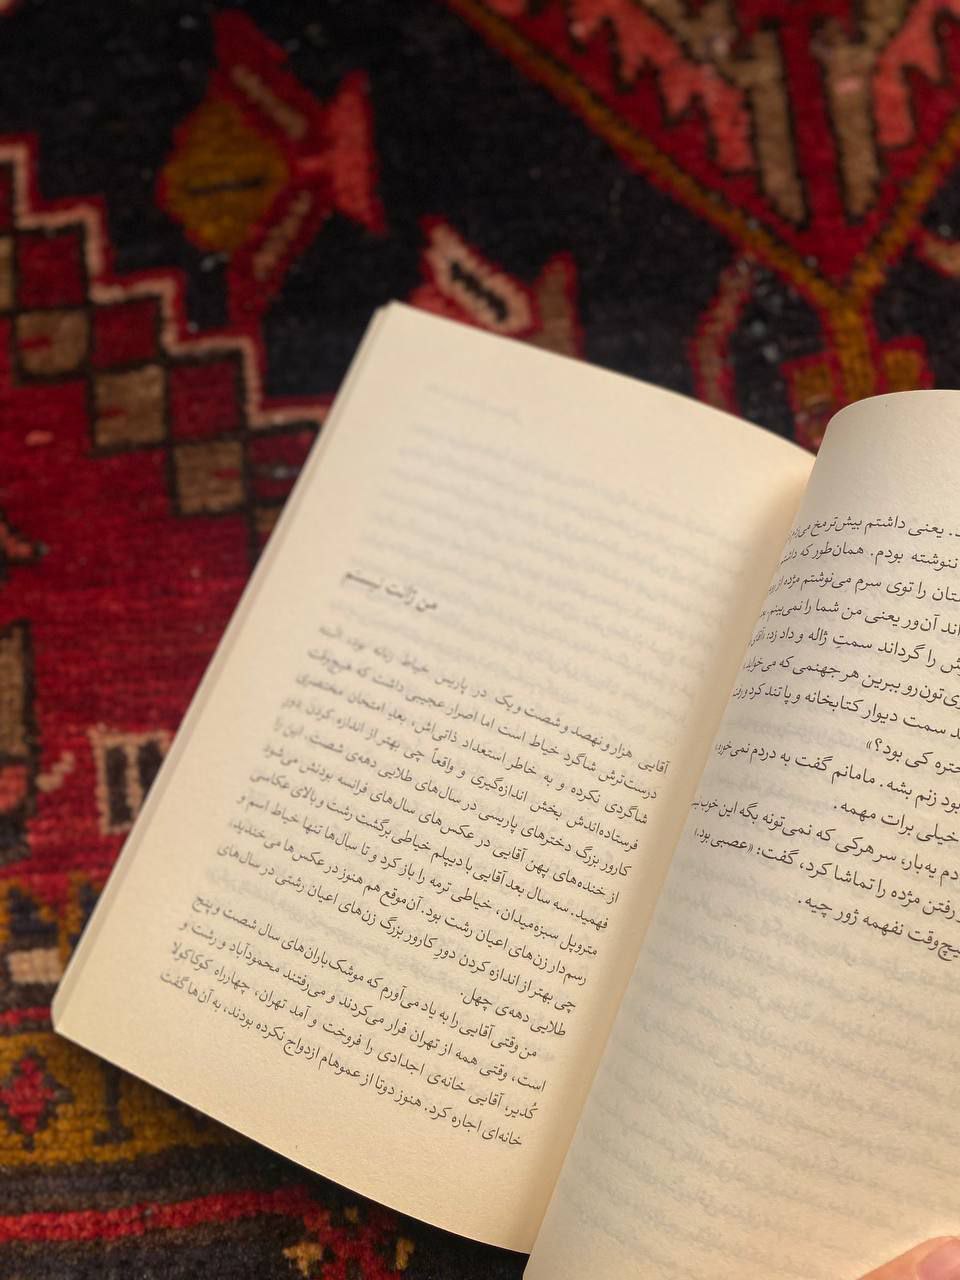 یعنی داشتم بیش‌تر مخ می‌زدم
ننوشته بودم. همان‌طور که داشتم
را توی سرم می‌نوشتم مژده از
آن‌ور یعنی من شما را نمی‌بینم. بعد
را گرداند سمتِ ژاله و داد زد: «آقای
ببرین هر جهنمی که می‌خواید
سمت دیوار کتابخانه و پا تند کرد و رفت
کی بود؟»
بود زنم بشه. مامانم گفت به دردم نمی‌خوره
خیلی برات مهمه.
یه‌بار، سر هرکی که نمی‌تونه بگه این خوب
رفتن مژده را تماشا کرد، گفت: «عصبی بود.»
هیچ‌وقت نفهمه ژور چیه.
من ژانت نیستم
آقایی هزار و نهصد و شصت و یک در پاریس خیاط زنانه بود، البته
درست‌ترش شاگرد خیاط است اما اصرار عجیبی داشت که هیچ‌وقت
شاگردی نکرده و به خاطر استعداد ذاتی‌اش، بعدِ امتحان مختصری
فرستاده‌اندش بخش اندازه‌گیری و واقعاً چی بهتر از اندازه کردن دورِ
کارور بزرگ دخترهای پاریسی در سال‌های طلایی دهه‌ی شصت. این را
از خنده‌های پهن آقایی در عکس‌های سال‌های فرانسه بودنش می‌شود
فهمید. سه سال بعد آقایی با دیپلم خیاطی برگشت رشت و بالای عکاسی
متروپل سبزه‌میدان، خیاطی ترمه را باز کرد و تا سال‌ها تنها خیاط اسم و
رسم‌دار زن‌های اعیان رشت بود. آن‌موقع هم هنوز در عکس‌ها می خندید،
چی بهتر از اندازه کردن دورِ کارور بزرگ زن‌های اعیان رشتی در سال‌های
طلایی دهه‌ی چهل.
من وقتی آقایی را به یاد می‌آورم که موشک‌باران‌های سال شصت و پنج
است، وقتی همه از تهران فرار می‌کردند و می‌رفتند محمودآباد و رشت و
کُدیر، آقایی خانه‌ی اجدادی را فروخت و آمد تهران، چهارراه کوکاکولا
خانه‌ای اجاره کرد. هنوز دوتا از عموهام ازدواج نکرده بودند، به آن‌ها گفت